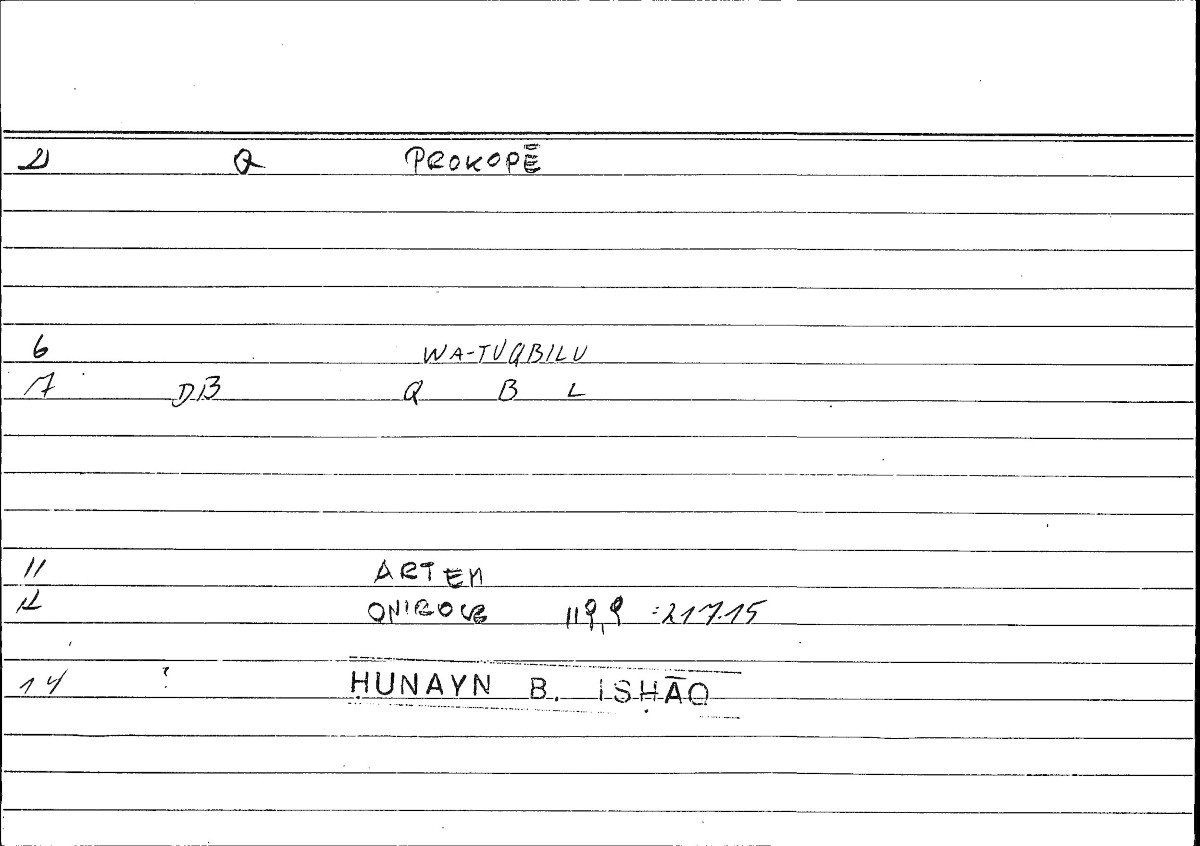 Q PROKOPĒ
6 WA-TUQBILU
17 DB Q B L
11 ARTEM
ONIROCR 119,9 :217.15
14 ? ḤUNAYN B. ISḤĀQ